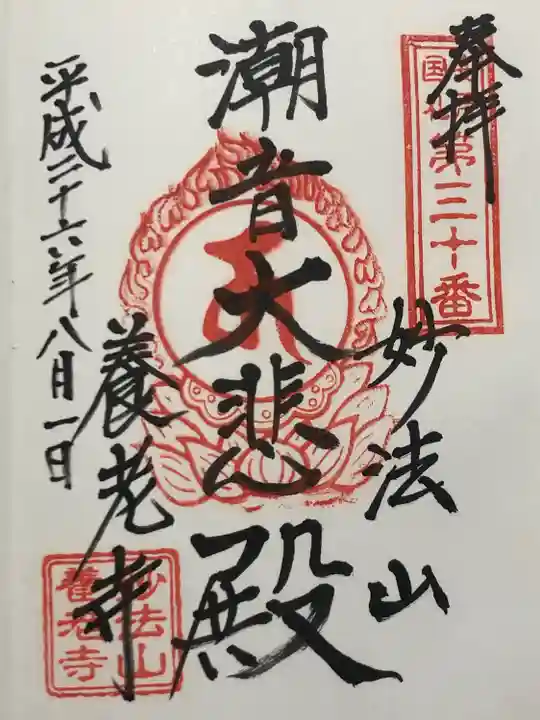 奉拝
第三十番
妙法山
潮音大悲殿
養老寺
平成二十六年八月一日
妙法山
養老寺